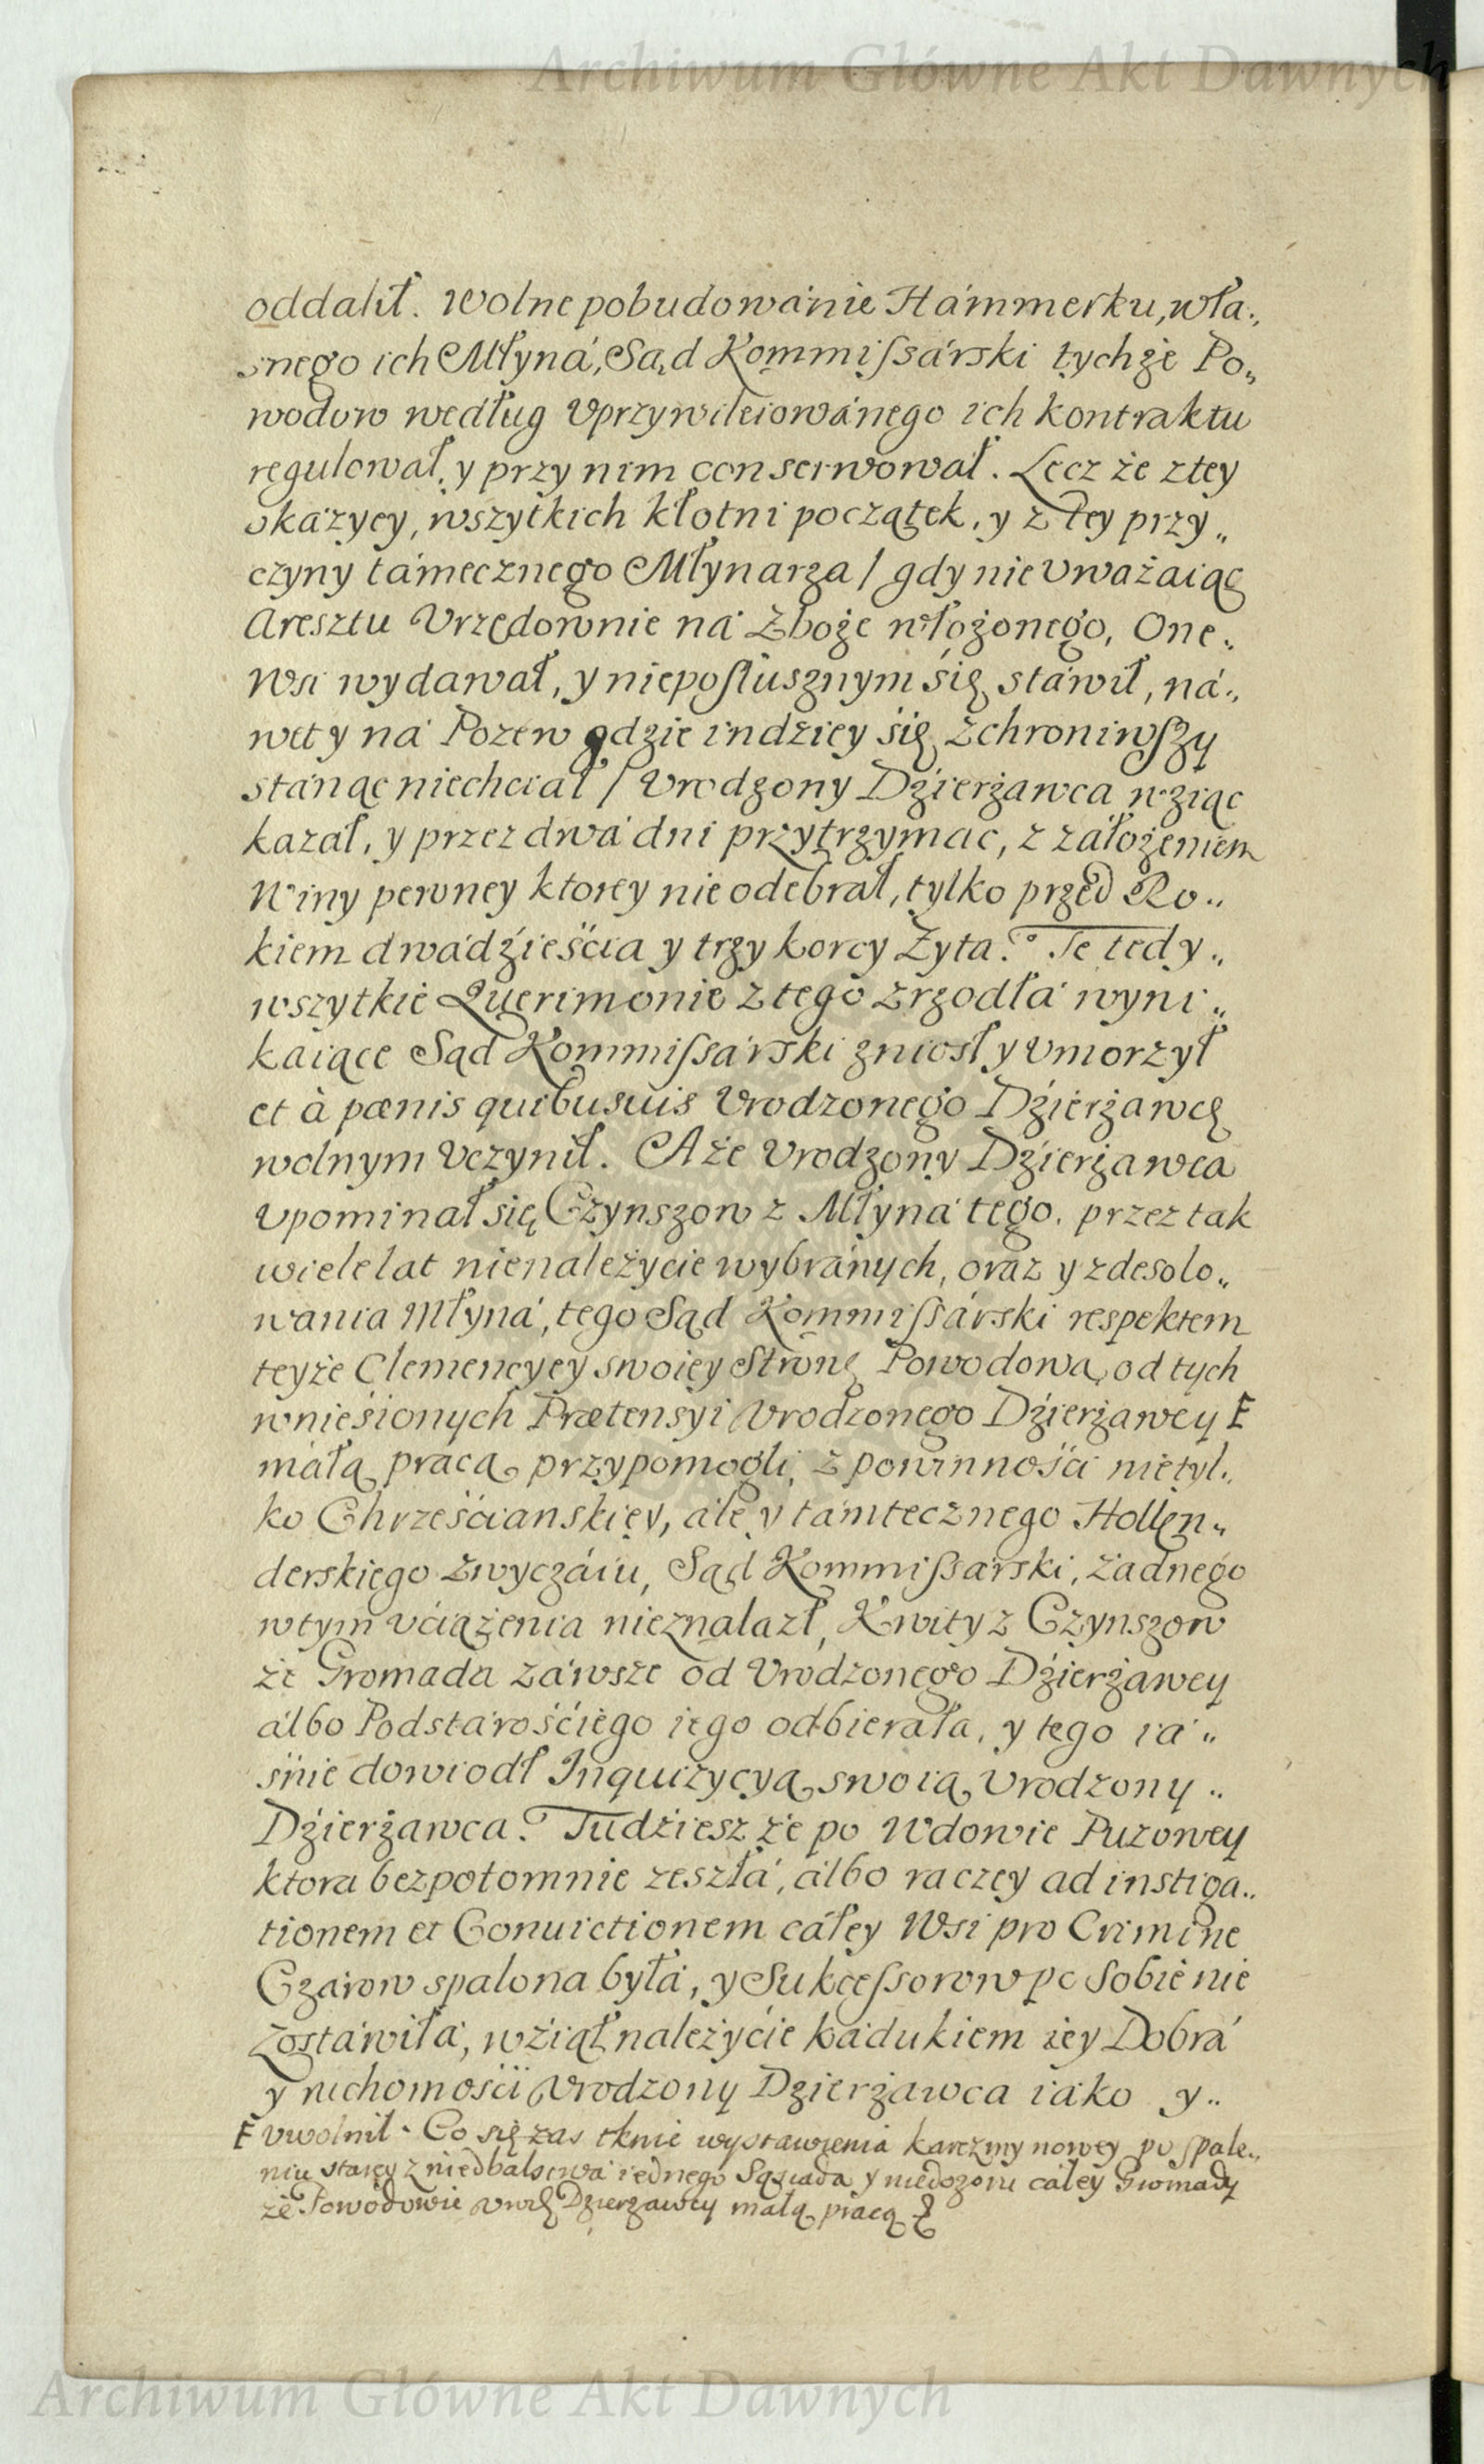 Archiwum Główne Akt Dawnych
oddalił. Wolne pobudowánie Hámmerku, wła„
snego ich Młyná, Sąd Kommißárski tychże Po„
wodow według Vprzywileiowánego ich kontraktu
regulował, y przy nim conserwował. Lecz że z tey
okázyey, wszytkich kłotni początek, y z tey przy„
czyny támecznego Młynarza / gdy nie Vważaiąc
Aresztu Vrzędownie ná Zboże włożonego, One„
Wsi wydawał, y nieposłusznym się stáwił, ná„
wet y ná Pozew gdzie indziey się zchroniwszy
stánąc niechciał / Vrodzony Dzierżawca wziąc
kazał, y przez dwá dni przytrzymac, z záłożeniem
Winy pewney ktorey nie odebrał, tylko przed Ro„
kiem dwádźieśćia y trzy korcy Żyta. Te tedy„
wszytkie Querimonie z tego zrzodłá wyni„
kaiące Sąd Kommißárski zniosł y Vmorzył
et à pœnis quibusuis Vrodzonego Dźierżawcę
wolnym Vczynił. A że Vrodzony Dźierżawca
Vpominał się Czynszow z Młyná tego, przez tak
wiele lat nienależycie wybránych, oraz y zdesolo„
wania Młyná, tego Sąd Kommißárski respektem
teyże Clemencyey swoiey Stronę Powodową, od tych
wnieśionych Prætensyi Vrodzonego Dźierżawcy F
máłą prácą przypomogli, z powinnośći nietyl„
ko Chrześćianskiey, ale y támtecznego Hollen„
derskiego zwyczáiu, Sąd Kommißarski, żadnego
w tym Vciążenia nieznalazł, Kwity z Czynszow
że Gromada záwsze od Vrodzonego Dźierżawcy
álbo Podstárośćiego iego odbierała, y tego iá„
śnie dowiodł Inquizycyą swoią Vrodzony„
Dźierżawca. Tudziesz że po Wdowie Puzowey
ktora bezpotomnie zeszłá, álbo raczey ad instiga„
tionem et Conuictionem cáłey Wsi pro Crimine
Czárow spalona byłá, y Sukceßorow po sobie nie
zostáwiłá, wźiął należyćie kádukiem iey Dobrá
y ruchomośći Vrodzony Dzierżawca iáko y„
F Vwolnił. Co się zas tknie wystawienia karczmy nowey po spale„
niu starey z niedbalstwá iednego Sąsiada y niedozoru całey Gromady
że Powodowie Vrodz. Dzierzawcy małą pracą
Archiwum Główne Akt Dawnych